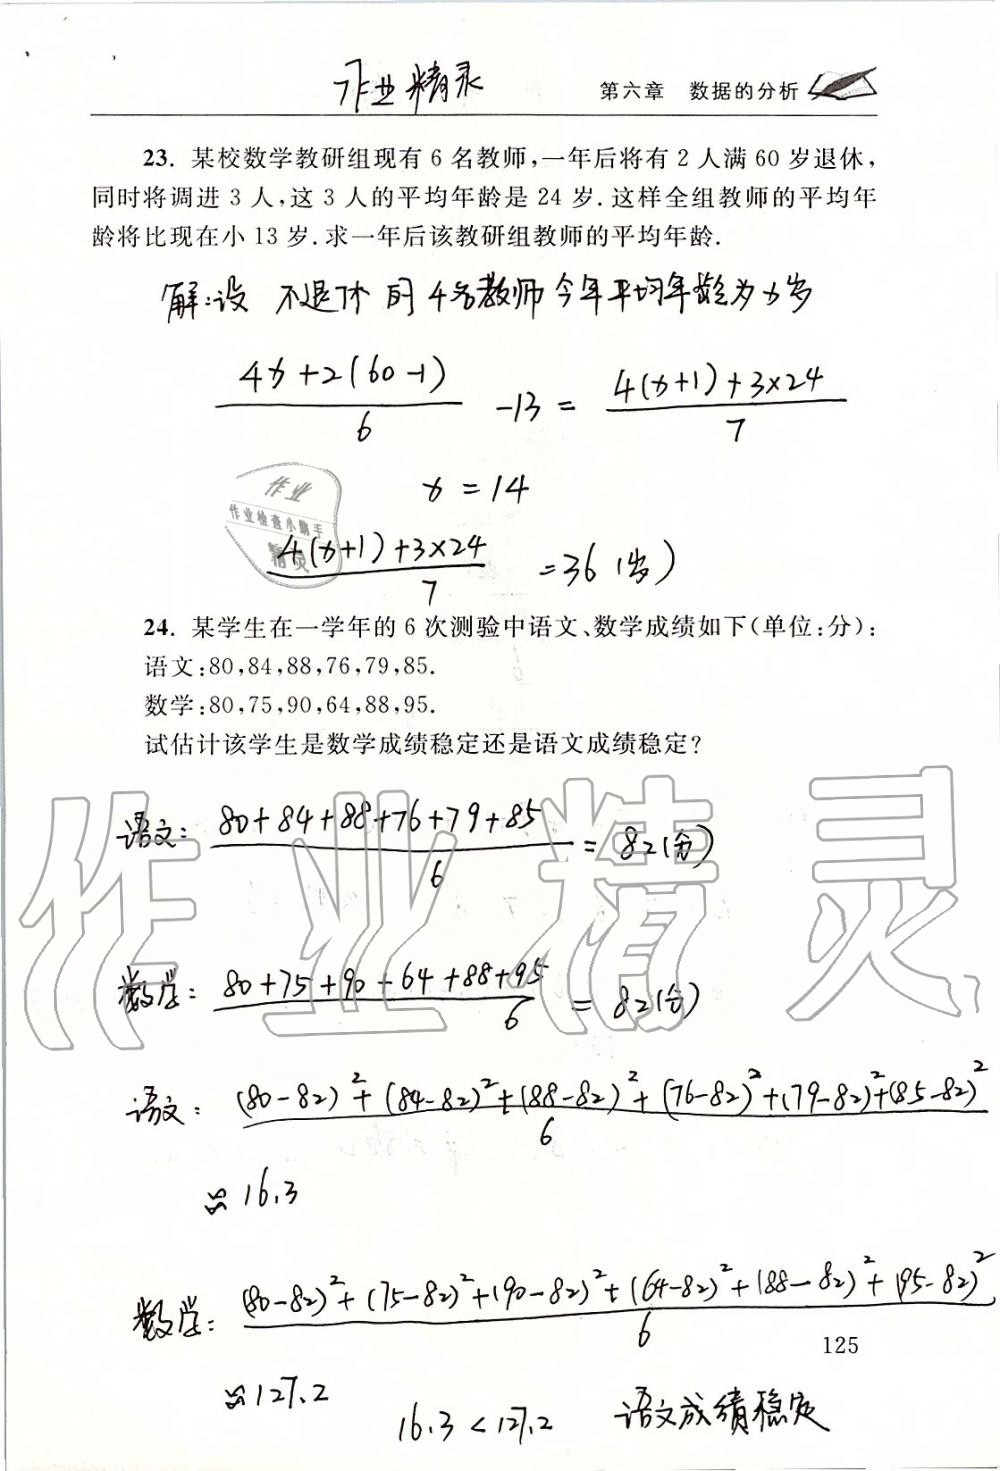 作业精灵
第六章 数据的分析
23. 某校数学教研组现有 6 名教师,一年后将有 2 人满 60 岁退休,
同时将调进 3 人,这 3 人的平均年龄是 24 岁.这样全组教师的平均年
龄将比现在小 13 岁.求一年后该教研组教师的平均年龄.
解:设 不退休的4名教师今年平均年龄为x岁
4x+2(60-1)/6 -13 = 4(x+1)+3×24/7
x=14
作业
作业检查小帮手
精灵
4(x+1)+3×24/7 =36(岁)
24. 某学生在一学年的 6 次测验中语文、数学成绩如下(单位:分):
语文:80,84,88,76,79,85.
数学:80,75,90,64,88,95.
试估计该学生是数学成绩稳定还是语文成绩稳定?
作业精灵
语文: 80+84+88+76+79+85/6 = 82(分)
数学: 80+75+90+64+88+95/6 = 82(分)
语文: (80-82)²+(84-82)²+(88-82)²+(76-82)²+(79-82)²+(85-82)²/6
≈16.3
数学: (80-82)²+(75-82)²+(90-82)²+(64-82)²+(88-82)²+(95-82)²/6
125
≈127.2
16.3<127.2 语文成绩稳定